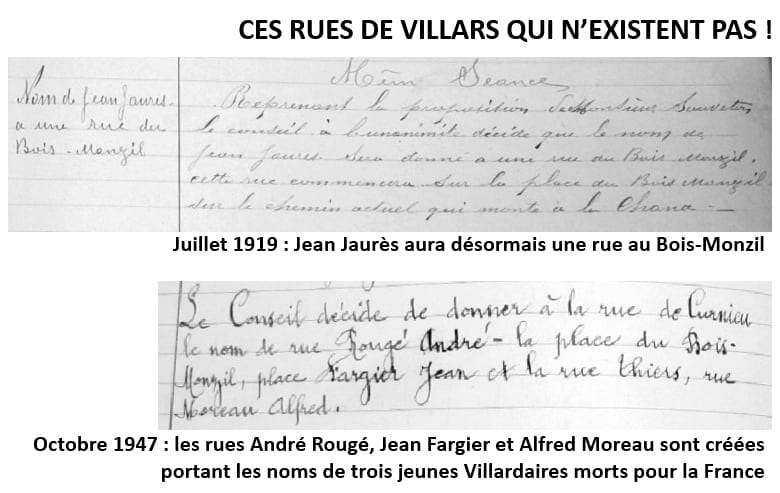 CES RUES DE VILLARS QUI N'EXISTENT PAS !
Même Seance
Nom de Jean Jaures
a une rue du
Bois-Monzil
Reprenant la proposition de Monsieur Sauveton
le conseil à l'unanimité décide que le nom de
Jean Jaures sera donné a une rue du Bois Monzil,
cette rue commencera sur la place du Bois Monzil
sur le chemin actuel qui monte à la Chana —
Juillet 1919 : Jean Jaurès aura désormais une rue au Bois-Monzil
Le Conseil décide de donner à la rue de Curnieu
le nom de rue Rougé André - la place du Bois-
Monzil, place Fargier Jean et la rue Thiers, rue
Moreau Alfred.
Octobre 1947 : les rues André Rougé, Jean Fargier et Alfred Moreau sont créées
portant les noms de trois jeunes Villardaires morts pour la France